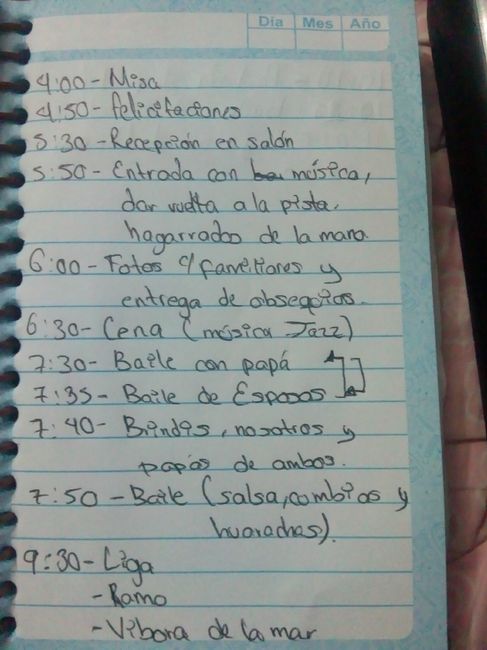 Día Mes Año
4:00 - Misa
4:50 - felicitaciones
5:30 - Recepción en salón
5:50 - Entrada con música,
dar vuelta a la pista,
hagarrados de la mano.
6:00 - Fotos c/ familiares y
entrega de obsequios.
6:30 - Cena (música Jazz)
7:30 - Baile con papá
7:35 - Baile de Esposos
7:40 - Brindis, nosotros y
papás de ambos.
7:50 - Baile (salsa, cumbias y
huarachas).
9:30 - Liga
- Ramo
- Vibora de la mar